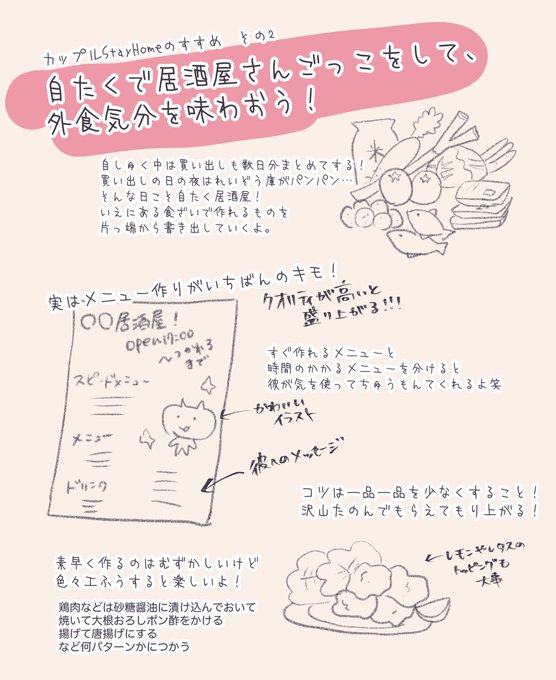 カップルStayHomeのすすめ その2
自たくで居酒屋さんごっこをして、
外食気分を味わおう！
自しゅく中は買い出しも数日分まとめてする！
買い出しの日の夜はれいぞう庫がパンパン…
そんな日こそ自たく居酒屋！
いえにある食ざいで作れるものを
片っ端から書き出していくよ。
実はメニュー作りがいちばんのキモ！
クオリティが高いと
盛り上がる!!!
〇〇居酒屋！
open17:00
〜つかれる
まで
スピードメニュー
メニュー
ドリンク
すぐ作れるメニューと
時間のかかるメニューを分けると
彼が気を使ってちゅうもんてくれるよ笑
かわいい
イラスト
彼へのメッセージ
コツは一品一品を少なくすること！
沢山たのんでもらえてもり上がる！
素早く作るのはむずかしいけど
色々工ふうすると楽しいよ！
レモンやレタスの
トッピングも
大事
鶏肉などは砂糖醤油に漬け込んでおいて
焼いて大根おろしポン酢をかける
揚げて唐揚げにする
など何パターンかにつかう